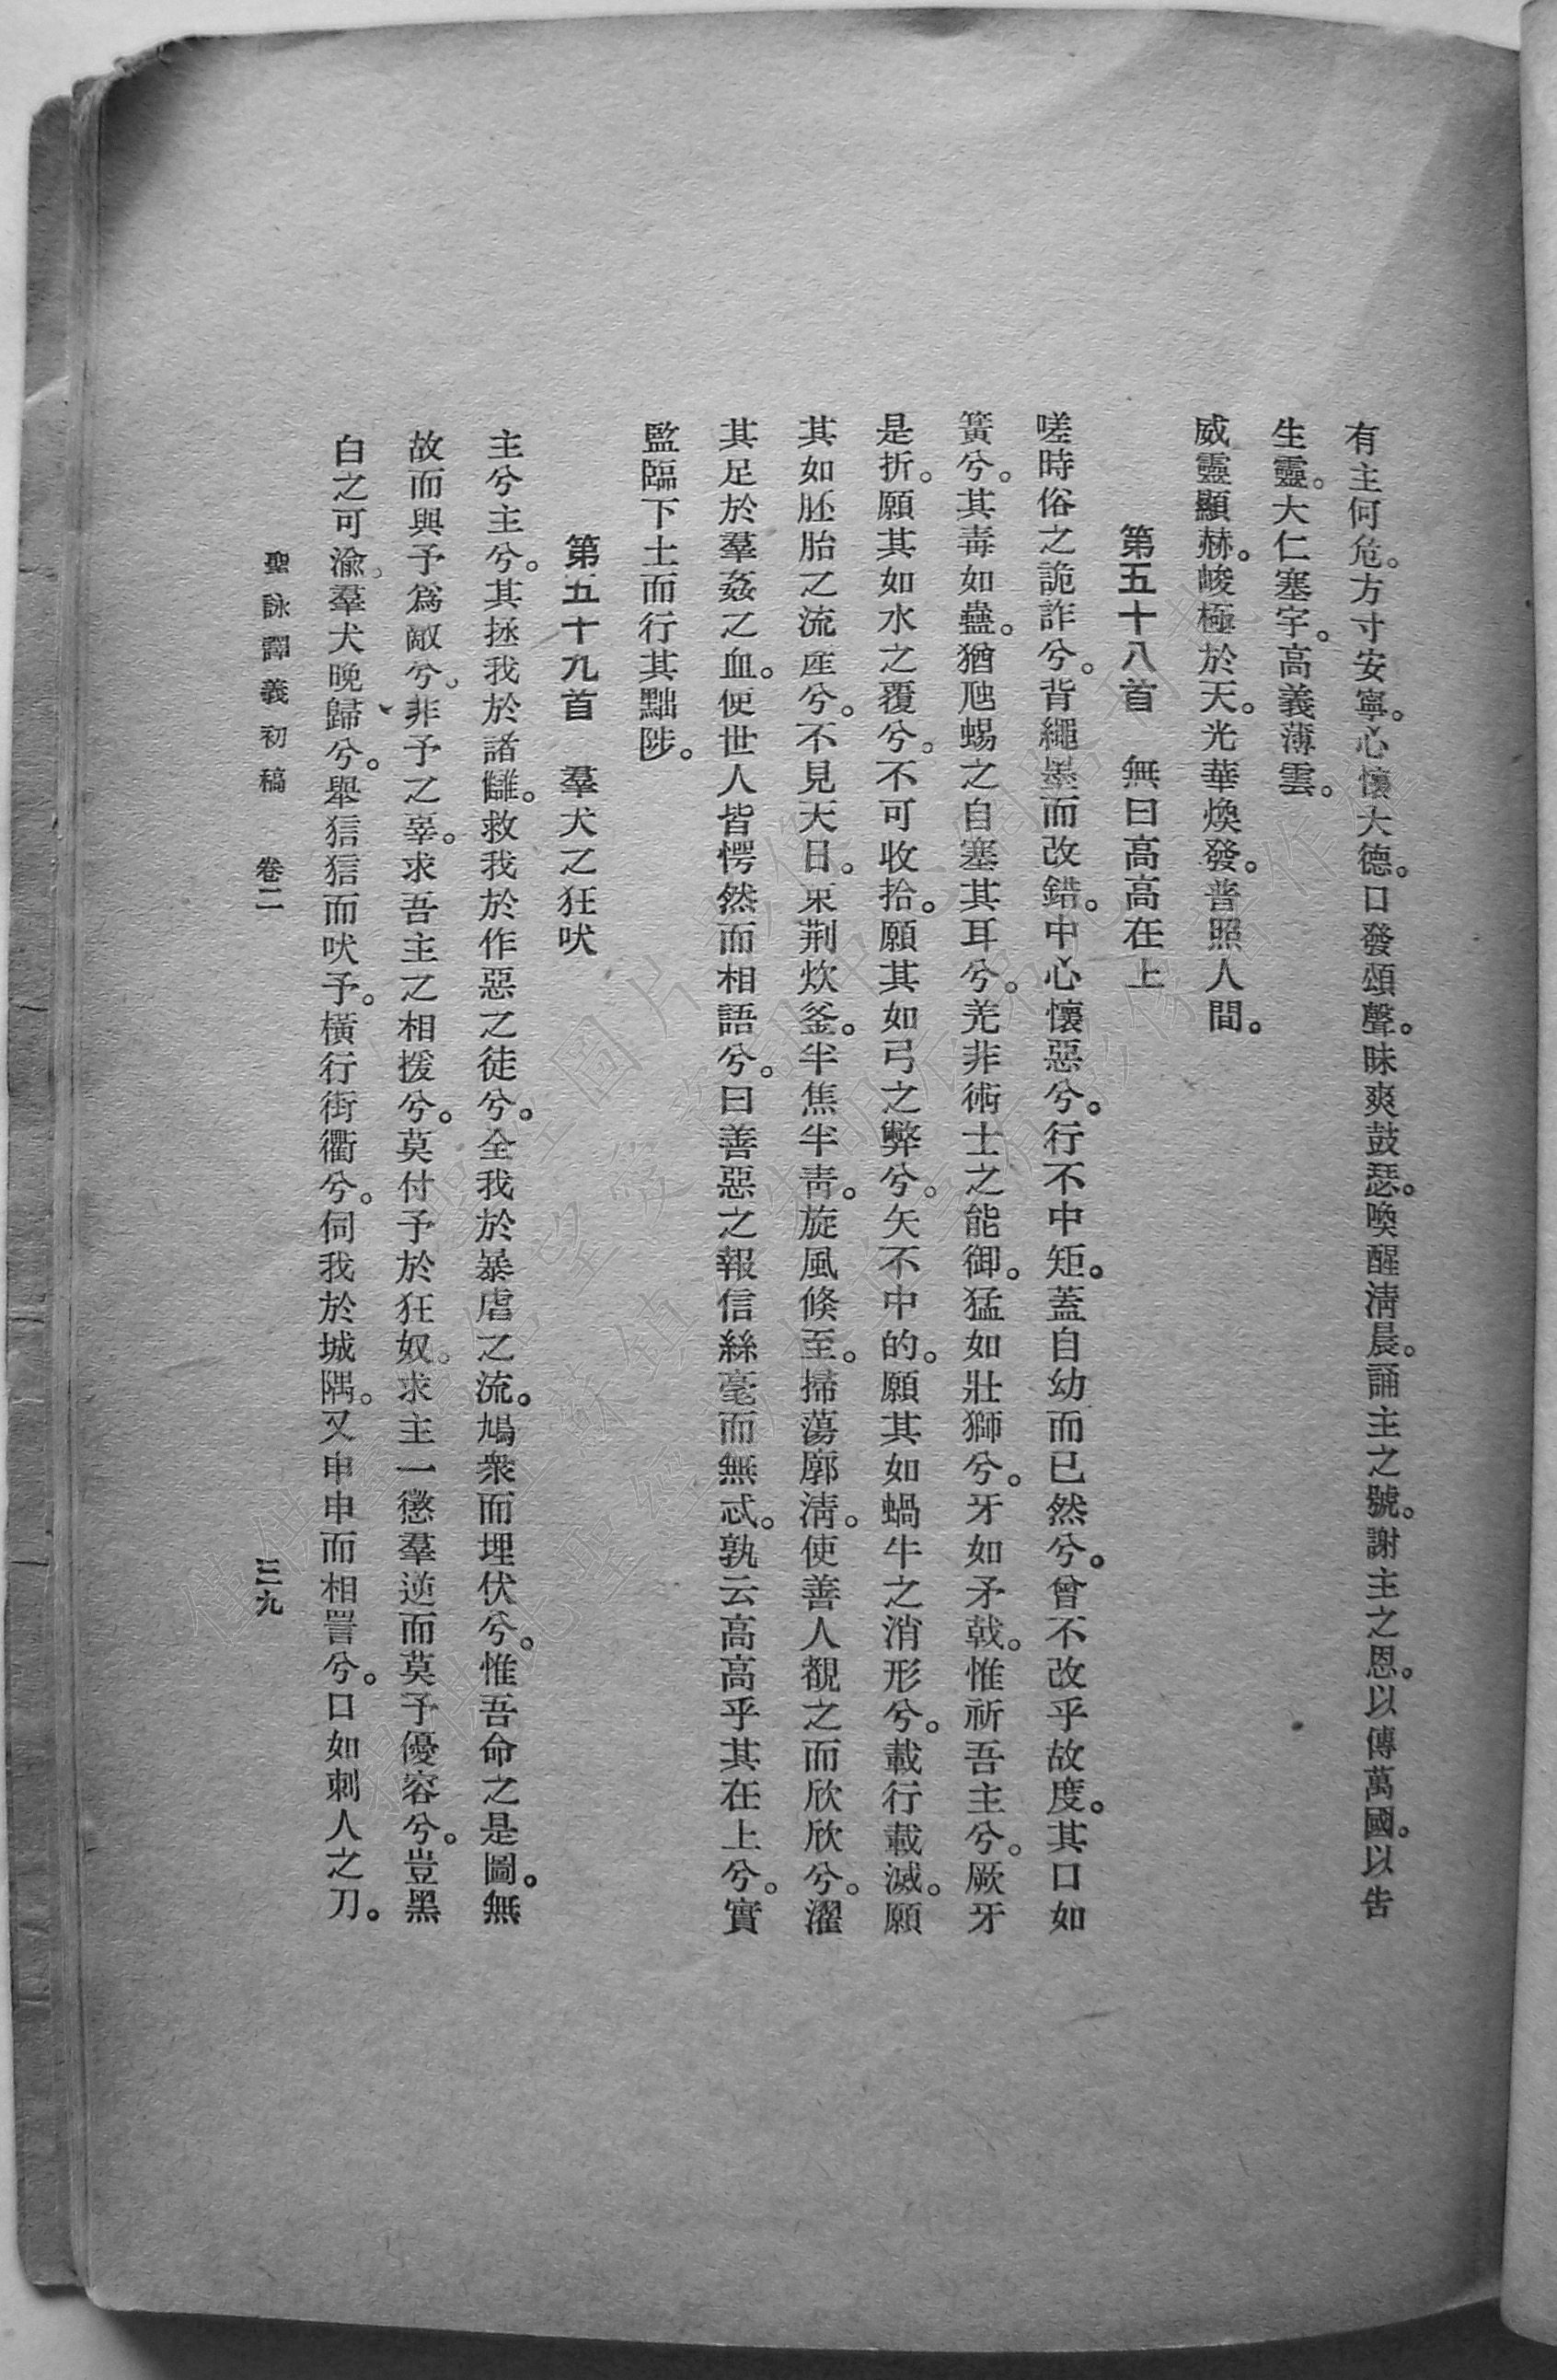 有主何危。方寸安寧。心懷大德。口發頌聲。昧爽鼓瑟。喚醒清晨。誦主之號。謝主之恩。以傳萬國。以告
生靈。大仁塞宇。高義薄雲。
威靈顯赫。峻極於天。光華煥發。普照人間。
第五十八首　無曰高高在上
嗟時俗之詭詐兮。背繩墨而改錯。中心懷惡兮。行不中矩。蓋自幼而已然兮。曾不改乎故度。其口如
簧兮。其毒如蠱。猶虺蜴之自塞其耳兮。羌非術士之能御。猛如壯獅兮。牙如矛戟。惟祈吾主兮。厥牙
是折。願其如水之覆兮。不可收拾。願其如弓之弊兮。矢不中的。願其如蝸牛之消形兮。載行載滅。願
其如胚胎之流產兮。不見天日。束荆炊釜。半焦半青。旋風倏至。掃蕩廓清。使善人覩之而欣欣兮。濯
其足於羣姦之血。使世人皆愕然而相語兮。曰善惡之報信絲毫而無忒。孰云高高乎其在上兮。實
監臨下土而行其黜陟。
第五十九首　羣犬之狂吠
主兮主兮。其拯我於諸讎。救我於作惡之徒兮。全我於暴虐之流。鳩衆而埋伏兮。惟吾命之是圖。無
故而與予爲敵兮。非予之辜。求吾主之相援兮。莫付予於狂奴。求主一懲羣逆而莫予優容兮。豈黑
白之可渝。羣犬晚歸兮。舉狺狺而吠予。橫行街衢兮。伺我於城隅。又申申而相詈兮。口如刺人之刀。
聖詠譯義初稿　卷二　三九